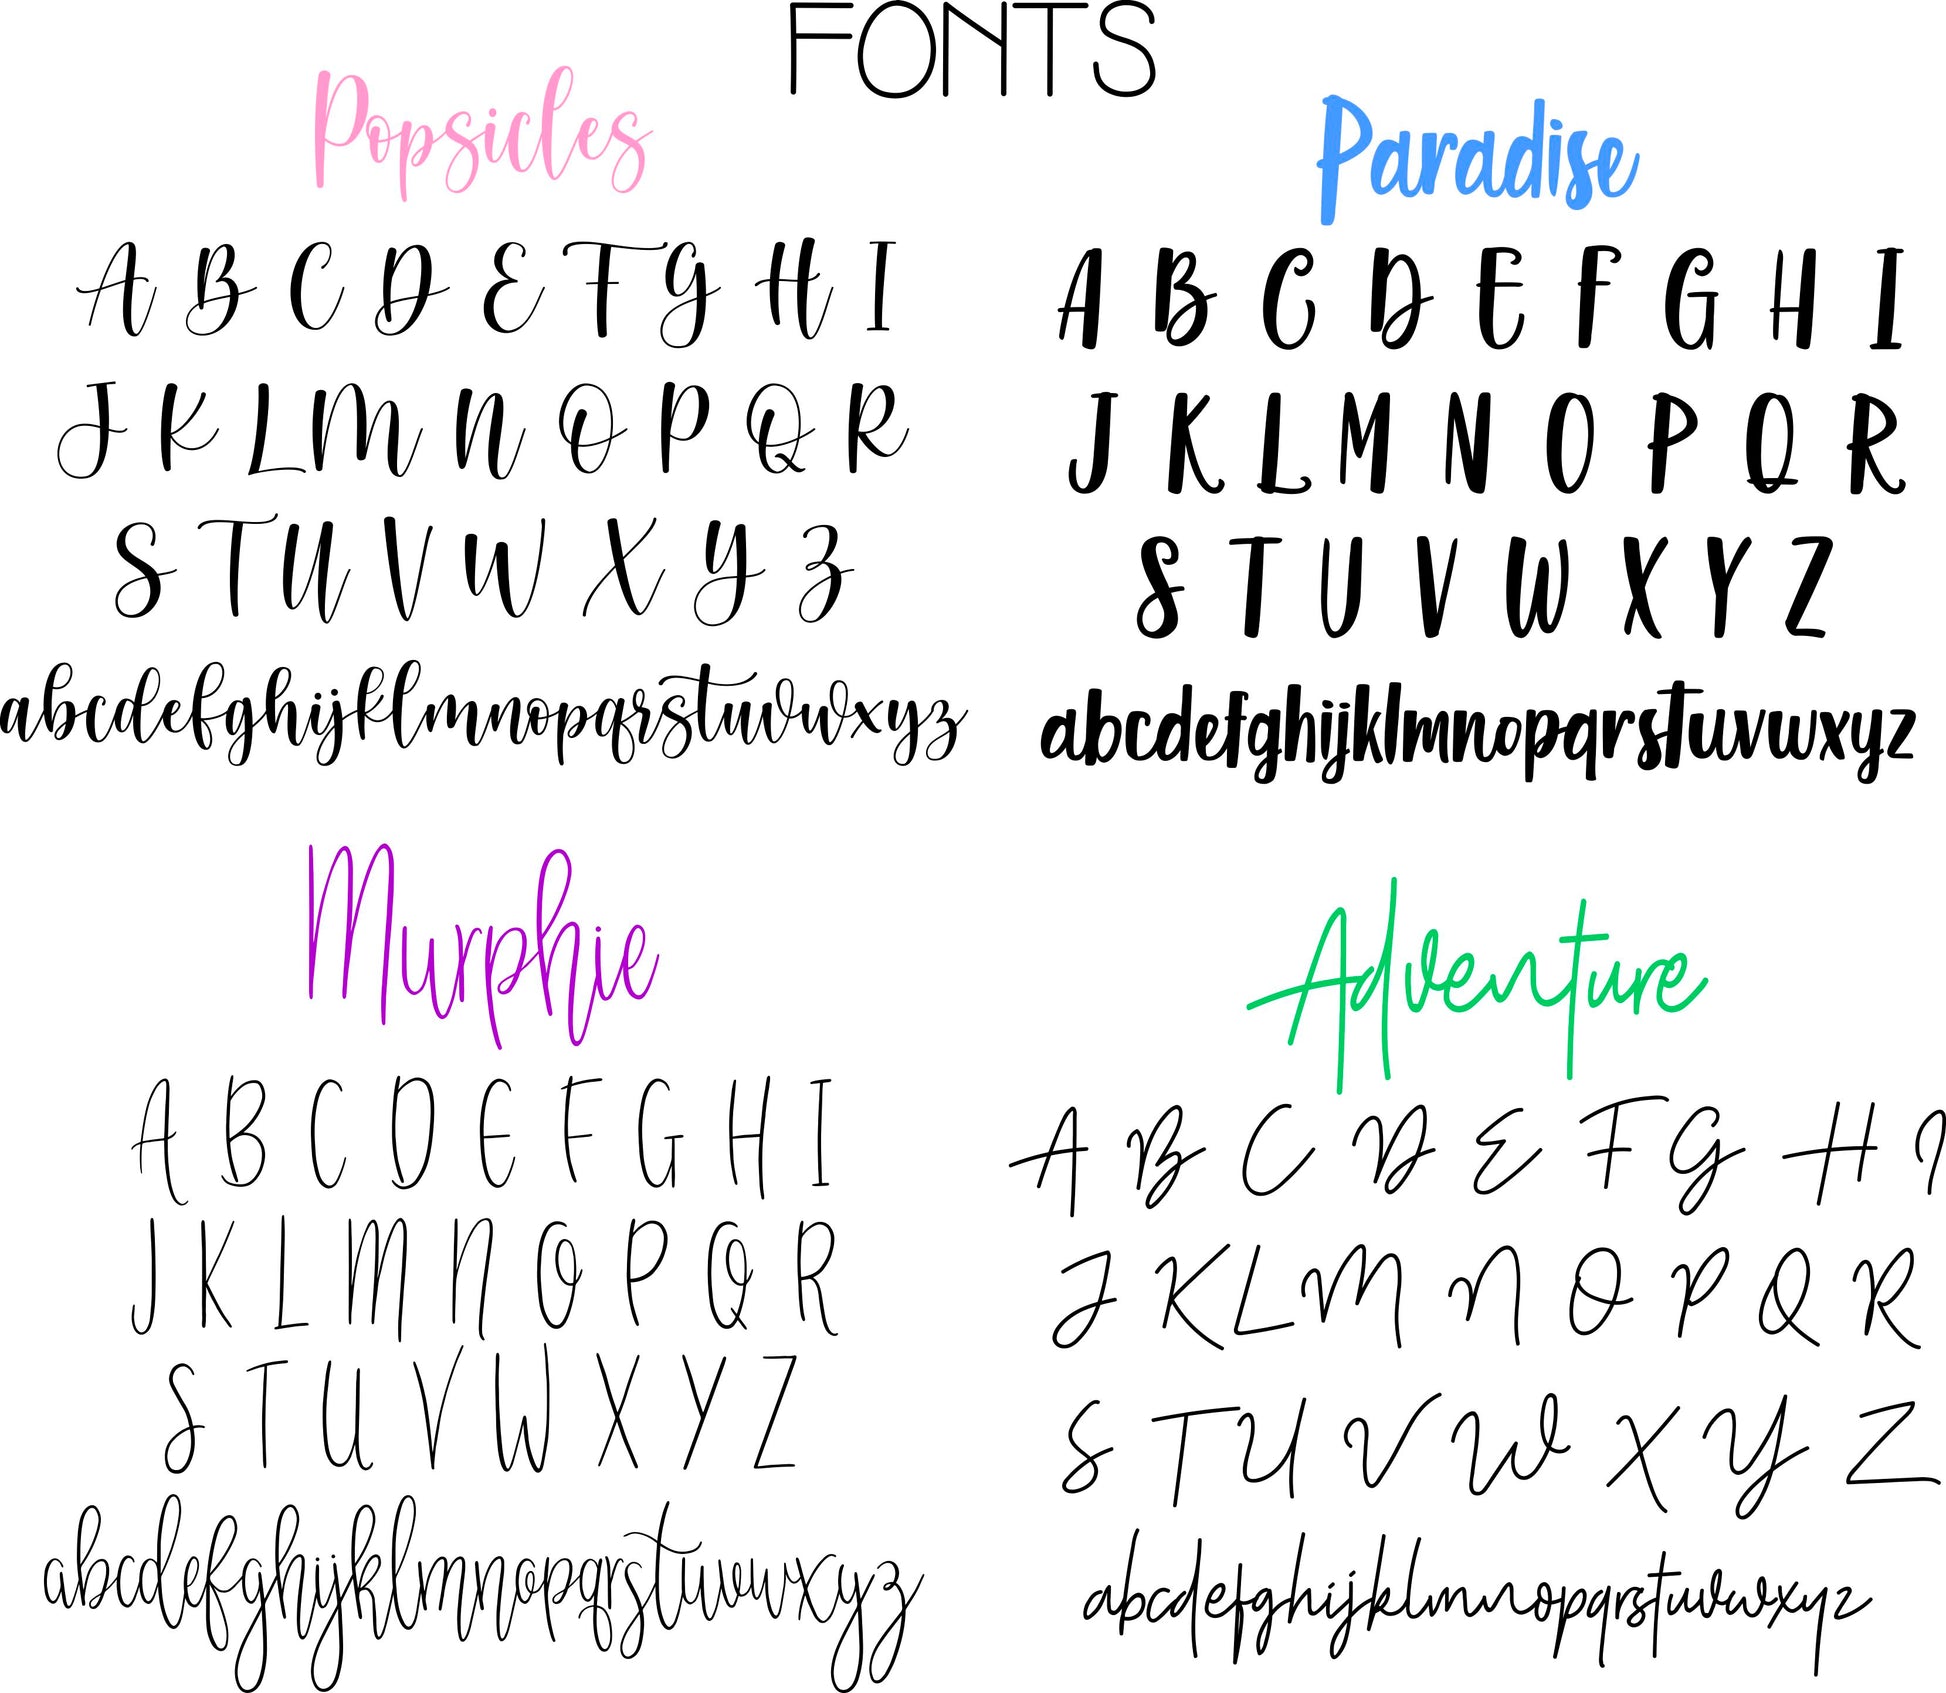 FONTS
Popsicles
A B C D E F G H I
J K L M N O P Q R
S T U V W X Y Z
abcdefghijklmnopqrstuvwxyz
Paradise
A B C D E F G H I
J K L M N O P Q R
S T U V W X Y Z
abcdefghijklmnopqrstuvwxyz
Murphie
A B C D E F G H I
J K L M N O P Q R
S T U V W X Y Z
abcdefghijklmnopqrstuvwxyz
Adventure
A B C D E F G H I
J K L M N O P Q R
S T U V W X Y Z
abcdefghijklmnopqrstuvwxyz